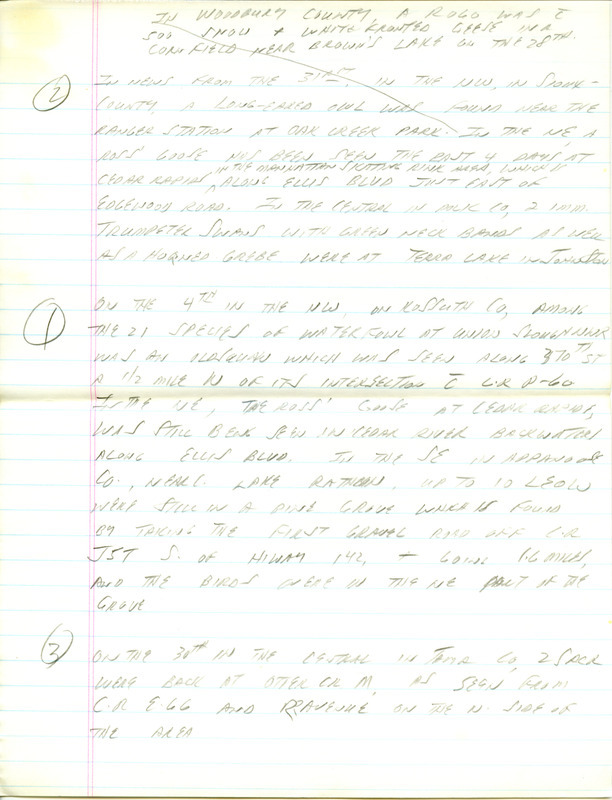 IN WOODBURY COUNTY, A ROGO WAS C̄
500 SNOW + WHITE-FRONTED GEESE IN A
CORNFIELD NEAR BROWN'S LAKE ON THE 28TH.
② IN NEWS FROM THE 31ST, IN THE NW, IN SIOUX
COUNTY, A LONG-EARED OWL WAS FOUND NEAR THE
RANGER STATION AT OAK CREEK PARK. IN THE NE, A
ROSS' GOOSE HAS BEEN SEEN THE PAST 4 DAYS AT
IN THE MANHATTAN SKATING RINK AREA, WHICH IS
CEDAR RAPIDS, ALONG ELLIS BLVD JUST EAST OF
EDGEWOOD ROAD. IN THE CENTRAL IN POLK CO, 2 IMM.
TRUMPETER SWANS WITH GREEN NECK BANDS AS WELL
AS A HORNED GREBE WERE AT TERRA LAKE IN JOHNSTON
① ON THE 4TH IN THE NW, ON KOSSUTH CO, AMONG
THE 21 SPECIES OF WATERFOWL AT UNION SLOUGH NWR
WAS AN OLDSQUAW WHICH WAS SEEN ALONG 370TH ST
A 1/2 MILE N OF ITS INTERSECTION C̄ C.R P-60
IN THE NE, THE ROSS' GOOSE AT CEDAR RAPIDS,
WAS STILL BEING SEEN IN CEDAR RIVER BACKWATERS
ALONG ELLIS BLVD. IN THE SE IN APPANOOSE
CO., NEAR LAKE RATHBUN, UP TO 10 LEOW
WERE STILL IN A PINE GROVE WHICH IS FOUND
BY TAKING THE FIRST GRAVEL ROAD OFF C.R
J5T S. OF HIWAY 142, + GOING 1.6 MILES,
AND THE BIRDS WERE IN THE NE PART OF THE
GROVE
③ ON THE 30TH IN THE CENTRAL IN TAMA CO, 2 SACR
WERE BACK AT OTTER CR M, AS SEEN FROM
C.R E-66 AND R AVENUE ON THE N. SIDE OF
THE AREA